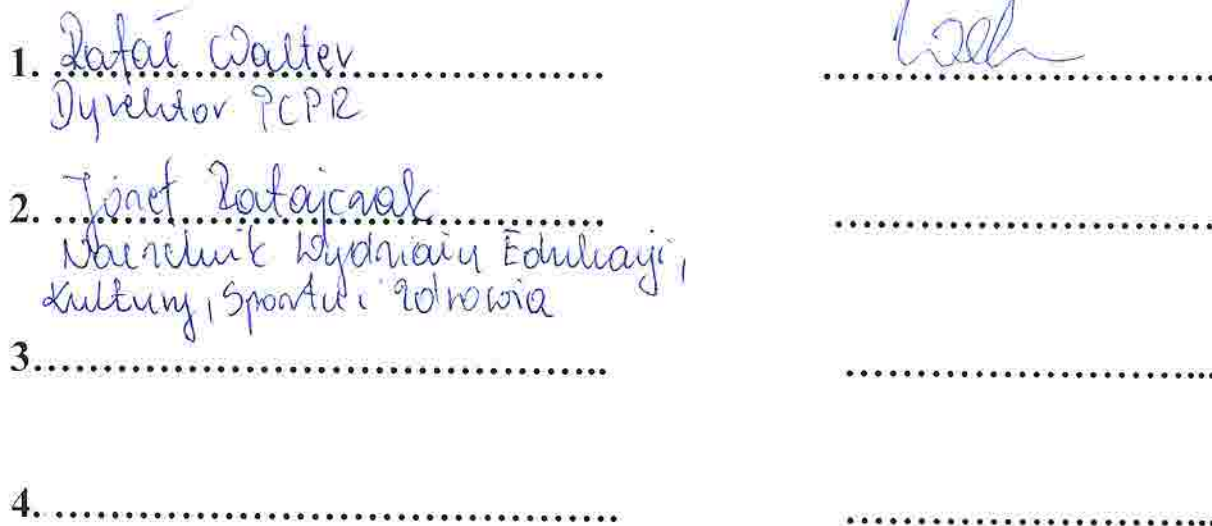 1. Rafał Walter
Dyrektor PCPR
2. Józef Ratajczak
Naczelnik Wydziału Edukacji,
Kultury, Sportu i Zdrowia
3.
4.